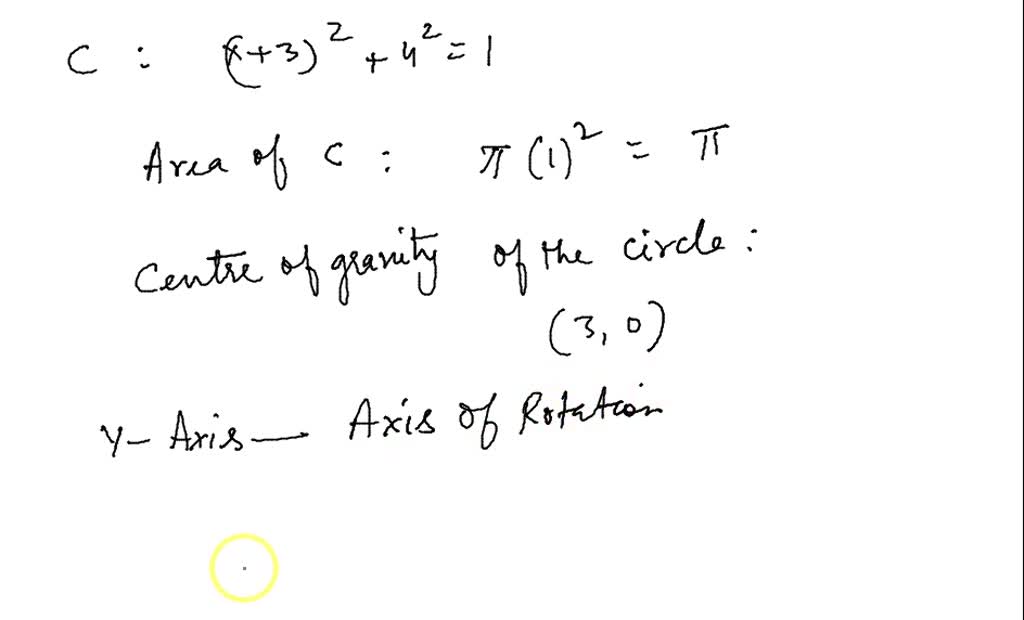 C : (x+3)² + y² = 1
Area of C : π (1)² = π
Centre of gravity of the circle :
(3, 0)
Y- Axis — Axis of Rotation